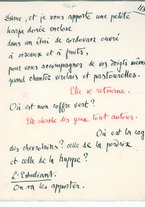 dame, et je vous apporte une petite
harpe dorée enclose
dans un étui de cordouan ouvré
à oiseaux et à fruits,
pour vous accompagner de vos doigts même
quand chantez virelais et pastourelles.
Elle se retourne.
Où est mon coffre vert ?
Elle cherche des yeux tout autour.
Où est la cage
des chevrolains ? celle de la perdrix
et celle de la huppe ?
L'Étudiant.
On va les apporter.